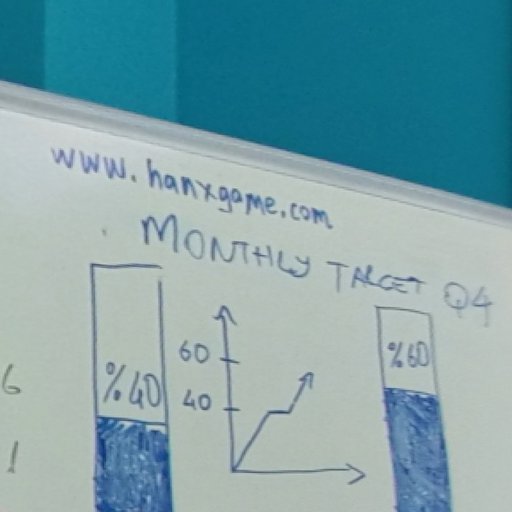 www.hanxgame.com
MONTHLY TARGET Q4
60
%60
6
%40
40
1